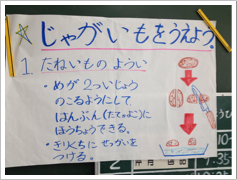 ☆じゃがいもをうえよう。
1. たねいもの ようい
・めが 2ついじょう
のこるようにして
はんぶん(たてよこ)に
ほうちょうできる。
・きりくちに せっかいを
つける。
7:35